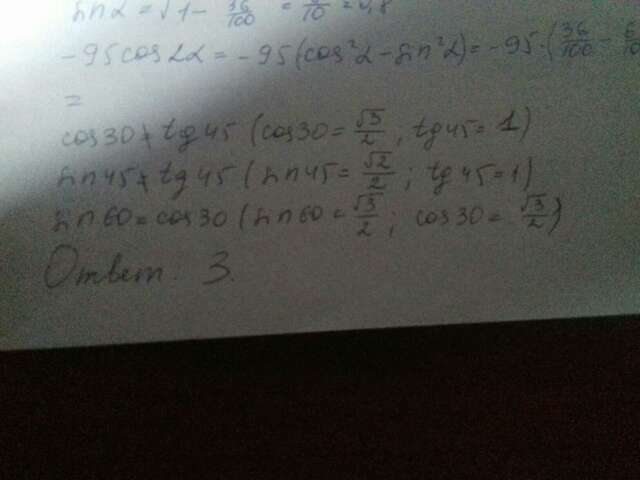 sin α = √1 - 36/100 = 8/10 = 0,8
-95cos2α = -95(cos²α - sin²α) = -95·(36/100 -
=
cos30 ≠ tg45 (cos30 = √3/2, tg45 = 1)
sin45 ≠ tg45 (sin45 = √2/2; tg45 = 1)
sin60 = cos30 (sin60 = √3/2; cos30 = √3/2)
Ответ: 3.